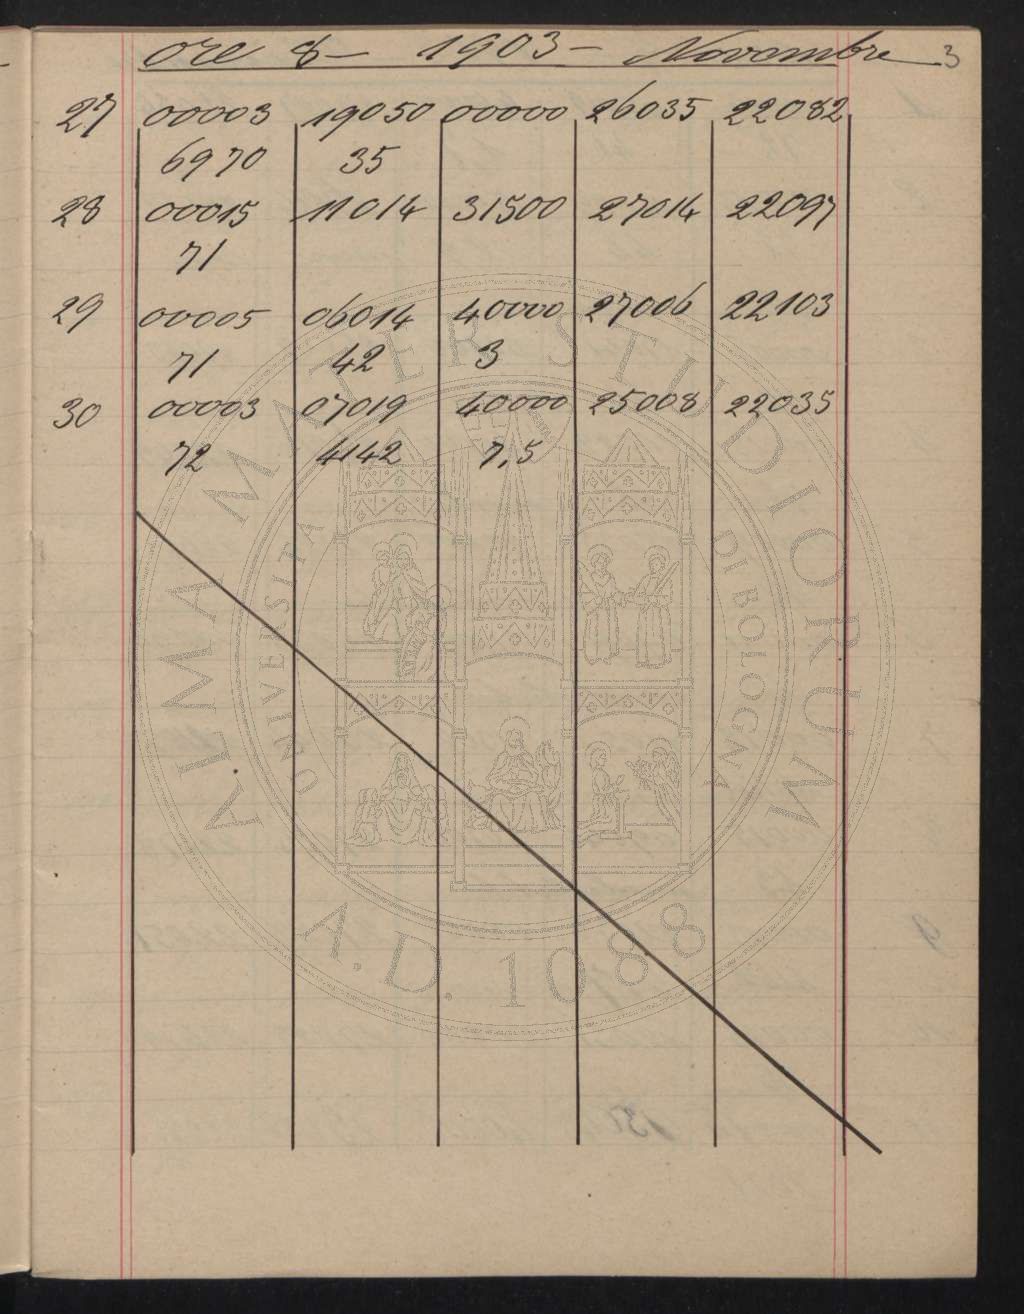 ore 8 - 1903 - Novembre 3
27 00003 19050 00000 26035 22082
6970 35
28 00015 11014 31500 27014 22097
71
29 00005 06014 40000 27006 22103
71 42 3
30 00003 07019 40000 25008 22035
72 4142 7,5
ALMA MATER STUDIORUM
UNIVERSITA DI BOLOGNA
A.D. 1088